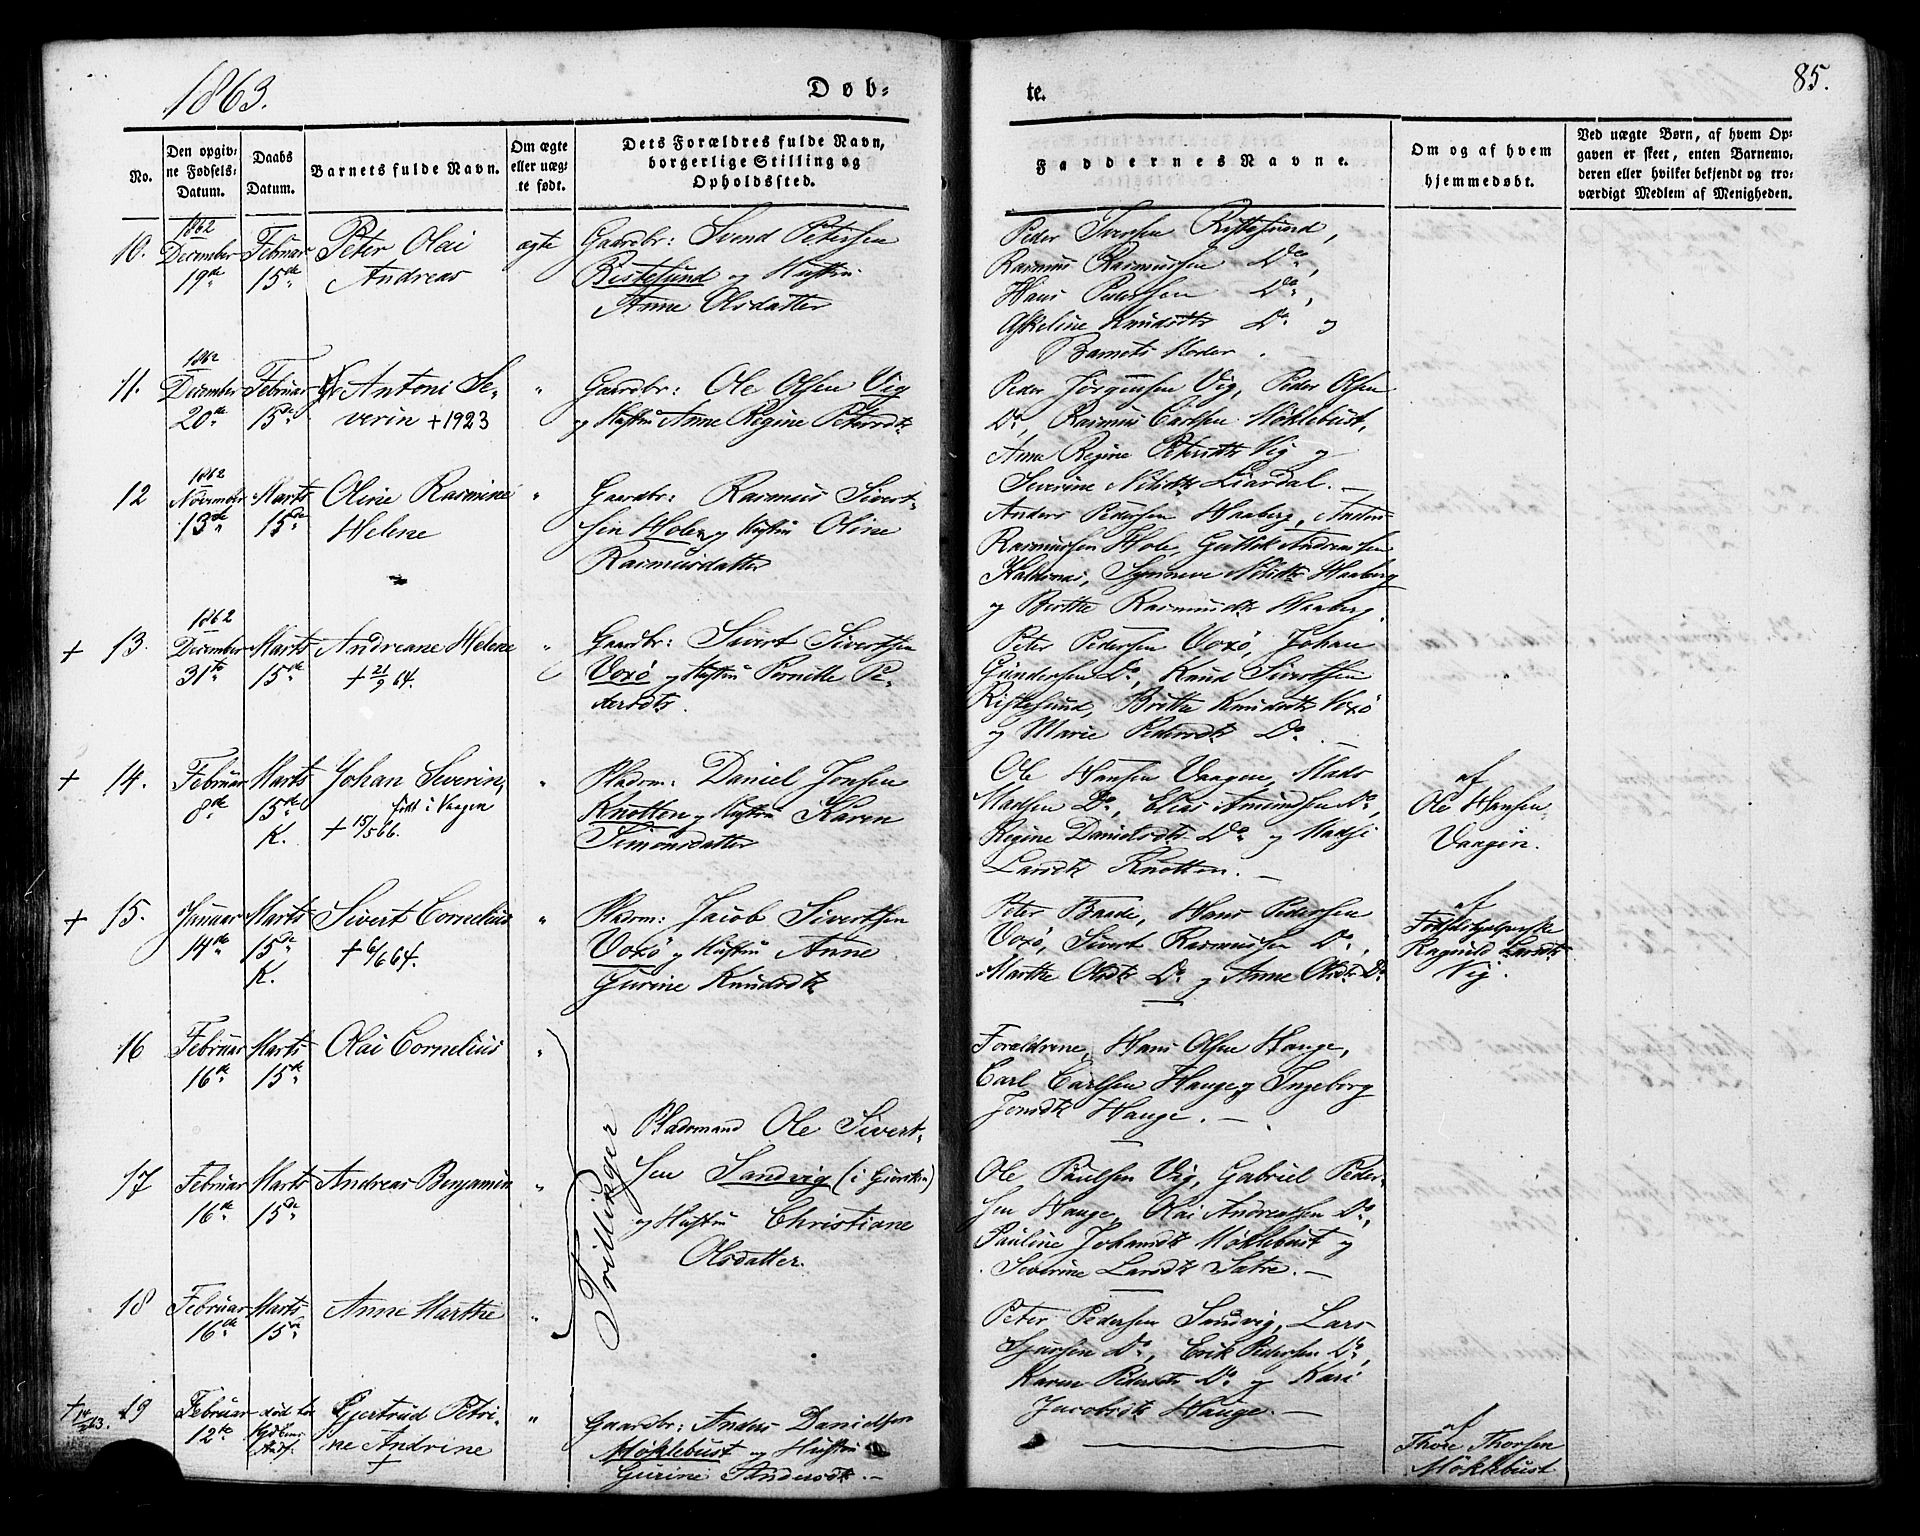 1863.
Døb-
te.
85.
No.
Den opgiv-
ne Fødsels-
Datum.
Daabs
Datum.
Barnets fulde Navn.
Om ægte
eller uæg-
te født.
Dets Forældres fulde Navn,
borgerlige Stilling og
Opholdssted.
Faddernes Navne.
Om og af hvem
hjemmedøbt.
Ved uægte Børn, af hvem Op-
gaven er skeet, enten Barnemo-
deren eller hvilket bekjendt og tro-
værdigt Medlem af Menigheden.
10.
1862
December
19de
Februar
15de
Peter Olai
Andreas
ægte
Gaardbr: Svend Petersen
Ristesund og Hustru
Anne Olsdatter
Peder Iversen Ristesund,
Rasmus Rasmussen Do,
Hans Pedersen Do,
Askeline Knudsdtr Do og
Barnets Moder.
11.
1862
December
20de
Februar
15de
Antoni Se-
verin +1923
"
Gaardbr: Ole Olsen Vig
og Hustru Anne Regine Petersdt.
Peder Jørgensen Vig, Peder Olsen
Do, Rasmus Carlsen Møklebust,
Anne Regine Petersdtr Vig og
Severine Nilsdtr Liardal. —
12
1862
November
13de
Marts
15de
Oline Rasmine
Helene
"
Gaardbr: Rasmus Sivert-
sen Hole og Hustru Oline
Rasmusdatter
Anders Pedersen Haaberg,
Rasmussen Hole, Andreassen
Synneve Nilsdtr Haaberg
og Berthe Rasmusdtr Haaberg
+ 13.
1862
December
31te
Marts
15de
Andreane Helene
+ 21/9 64.
"
Gaardbr: Sivert Sivertsen
Voxø og Hustru Pernille Pe-
dersdtr.
Peter Pedersen Voxø, Johan
Gundersen Do, Knud Sivertsen
Ristesund, Brithe Knudsdtr Voxø
og Marie Pedersdtr Do. —
+ 14.
Februar
8de
Marts
15de
K.
Johan Severin,
født i Vaagen
+ 15/5 66.
"
Pladsm: Daniel Jonsen
Knotten og Hustru Karen
Simonsdatter
Ole Hansen Vaagen, Mads
Madsen Do, Elias Amundsen Do,
Regine Danielsdtr Do og
Larsdt Knotten. —
af
Ole Hansen
Vaagen.
+ 15.
Januar
14de
Marts
15de
K.
Sivert Cornelius
+ 6/6 64.
"
Pladsm: Jacob Sivertsen
Voxø og Hustru Anne
Gurine Knudsdt
Peter Baade, Hans Pedersen
Voxø, Sivert Rasmussen Do,
Marthe Olsdt Do og Anne Olsdt Do.
af
Ragnild Larsdt
Vig.
16
Februar
16de
Marts
15de
Olai Cornelius
"
Forældrene, Hans Olsen Hauge,
Carl Carlsen Hauge og Ingeborg
Jonsdt Hauge. —
Trillinger
Pladsmand Ole Sivert-
sen Sandvig (i Giersken)
og Hustru Christiane
Olsdatter.
17
Februar
16de
Marts
15de
Andreas Benjamin
"
Ole Paulsen Vig, Gabriel Peder-
sen Hauge, Olai Andreassen Do,
Pauline Johansdt Møklebust og
Severine Larsdt Sætre. —
18
Februar
16de
Marts
15de
Anne Marthe
"
Peter Pedersen Sandvig, Lars
Sjursen Do, Erik Pedersen Do,
Karen Pedersdtr Do og Kari
Jacobsdt Hauge. —
19
Februar
12te
død
Gjertrud Petri-
ne Andrine
+
"
Gaardbr: Anders Danielsen
Møklebust og Hustru
Gurine Andersdt. —
af
Thore Thorsen
Møklebust